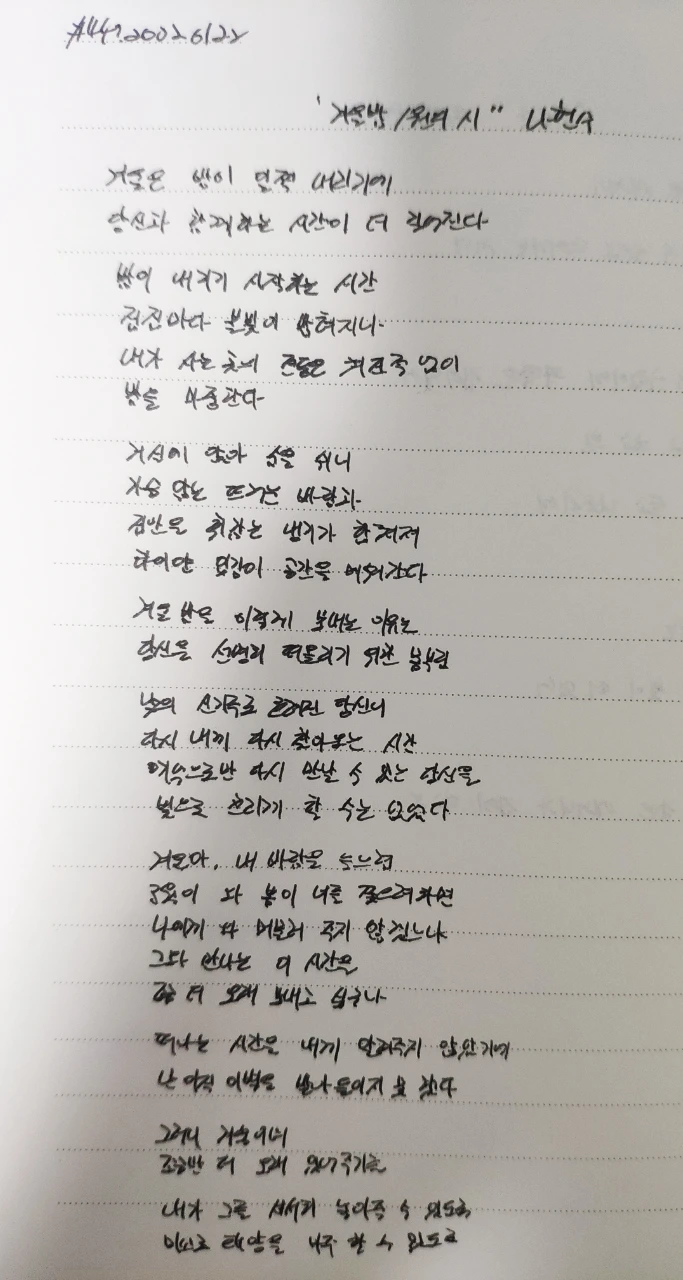 "겨울밤 /원덕 시" 나헌수
겨울은 밤이 일찍 내리기에
당신과 함께하는 시간이 더 길어진다
밤이 내리기 시작하는 시간
집집마다 불빛이 밝혀지니
내가 사는 곳의 전등은 켜진 적 없이
밤을 마중간다
거실에 앉아 숨을 쉬니
가슴 않는 뜨거운 바람과
집안을 휘감는 냉기가 합쳐져
하이얀 입김이 공간을 메워간다
겨울 밤을 이렇게 보내는 이유는
당신을 선명히 떠올리기 위한 몸부림
낮의 신기루로 흩어진 당신이
다시 내게 다시 찾아오는 시간
기억으로만 다시 만날 수 있는 당신을
빛으로 흐리게 할 수는 없었다
겨울아, 내 바람을 들으렴
3월이 와 봄이 너를 쫓으려하면
나에게 와 머물러 주지 않겠느냐
그와 만나는 이 시간을
좀 더 오래 보내고 싶구나
떠나는 시간을 내게 알려주지 않았기에
난 아직 이별을 받아들이지 못 했다
그러니 겨울이여
조금만 더 오래 있어주기를
내가 그를 서서히 놓아줄 수 있도록
미소로 태양을 마주 할 수 있도록